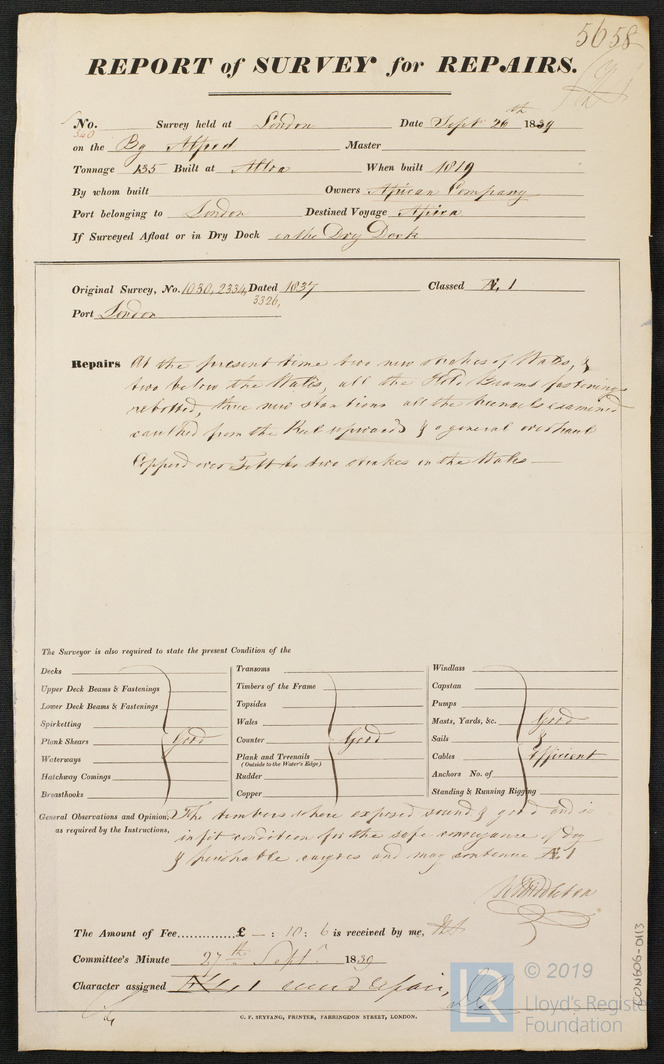 5658
REPORT of SURVEY for REPAIRS.
No. 340 Survey held at London Date Sept 26th 1839
on the Bg Alfred Master
Tonnage 135 Built at Alloa When built 1819
By whom built Owners African Company
Port belonging to London Destined Voyage Africa
If Surveyed Afloat or in Dry Dock in the Dry Dock
Original Survey, No. 1030, 2334, 3326, Dated 1837 Classed Æ 1
Port London
Repairs At the present time two new strakes of Wales, &
two below the Wales, all the Hold Beams fastenings
rebolted, three new stantions all the treenails examined
caulked from the Keel upwards & a general overhaul
Copperd over Felt to two strakes in the Wales
The Surveyor is also required to state the present Condition of the
Decks
Upper Deck Beams & Fastenings
Lower Deck Beams & Fastenings
Spirketting
Plank Shears Good
Waterways
Hatchway Comings
Breasthooks
Transoms
Timbers of the Frame
Topsides
Wales
Counter Good
Plank and Treenails
(Outside to the Water's Edge)
Rudder
Copper
Windlass
Capstan
Pumps
Masts, Yards, &c. Good
Sails &
Cables Efficient
Anchors No. of
Standing & Running Rigging
General Observations and Opinion, The timbers where exposed sound & good and is
as required by the Instructions, in fit condition for the safe conveyance of dry
& perishable cargoes and may continue Æ 1
Middleton
The Amount of Fee.............£ — : 10 : 6 is received by me,
Committee's Minute 27th Septr 1839
Character assigned Æ 1
G. F. SEYFANG, PRINTER, FARRINGDON STREET, LONDON.
LR © 2019
Lloyd's Registe
Foundation
CON606-0113